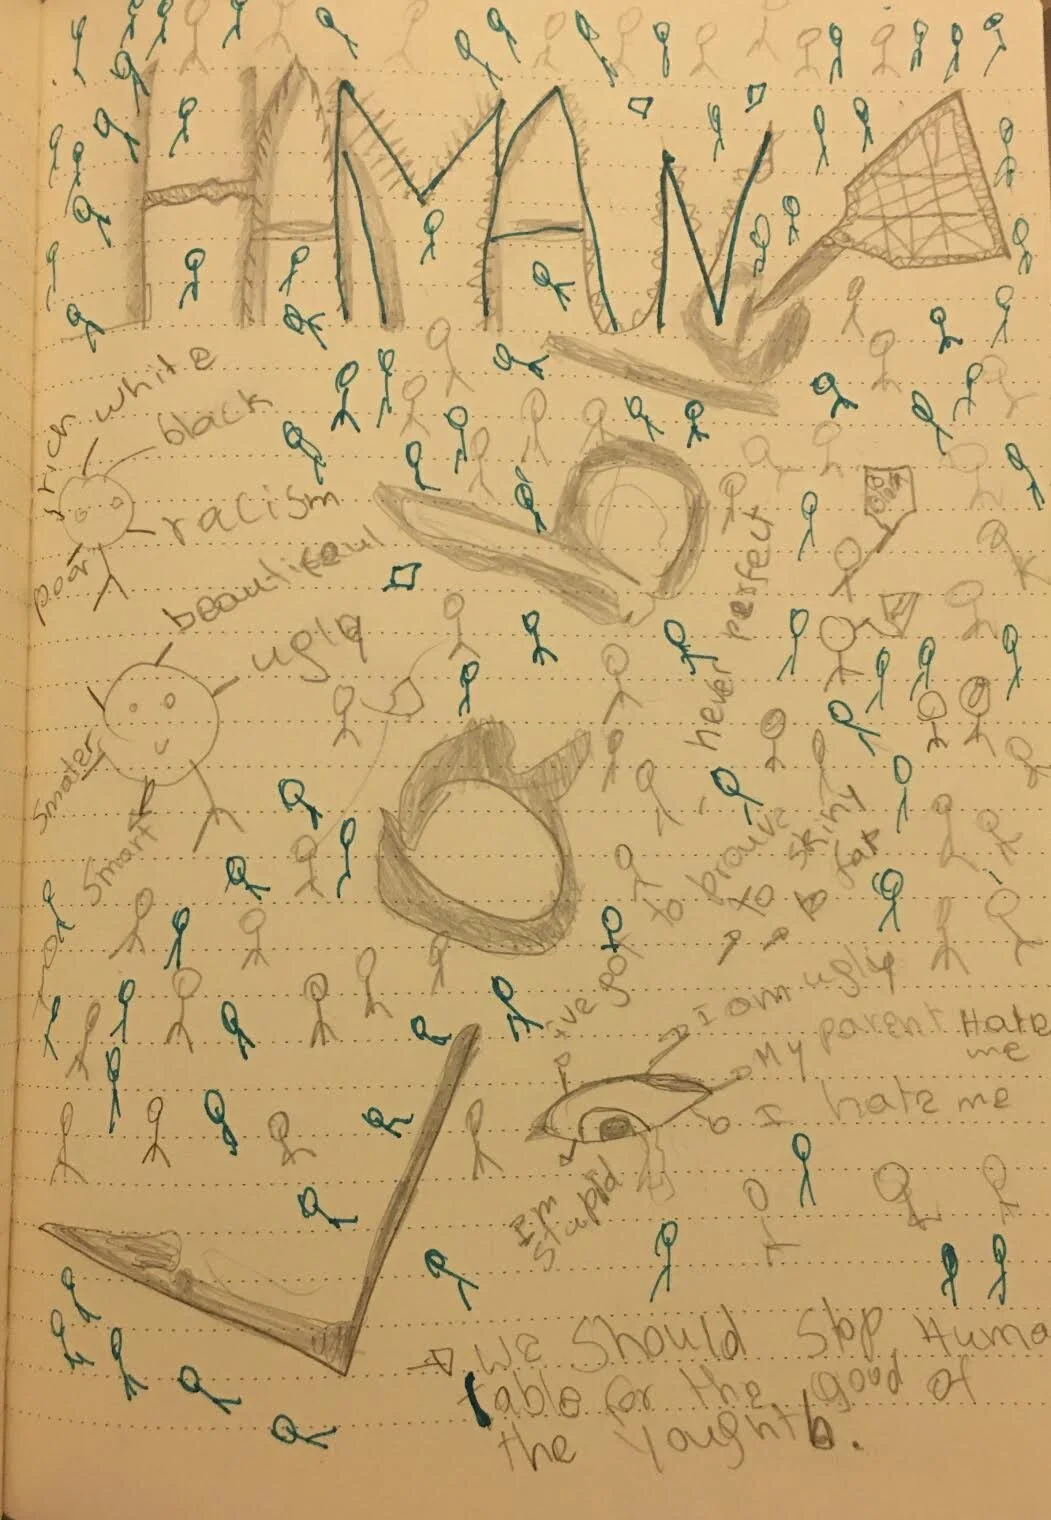 HMAN
white
black
racism
poor
beautifeul
ugly
smater
smart
never perfect
ive got to prouve
to skiny
to fat
I am ugly
My parent Hate
me
I hate me
Im
stupid
We should stop Huma
table for the good of
the Youghth.